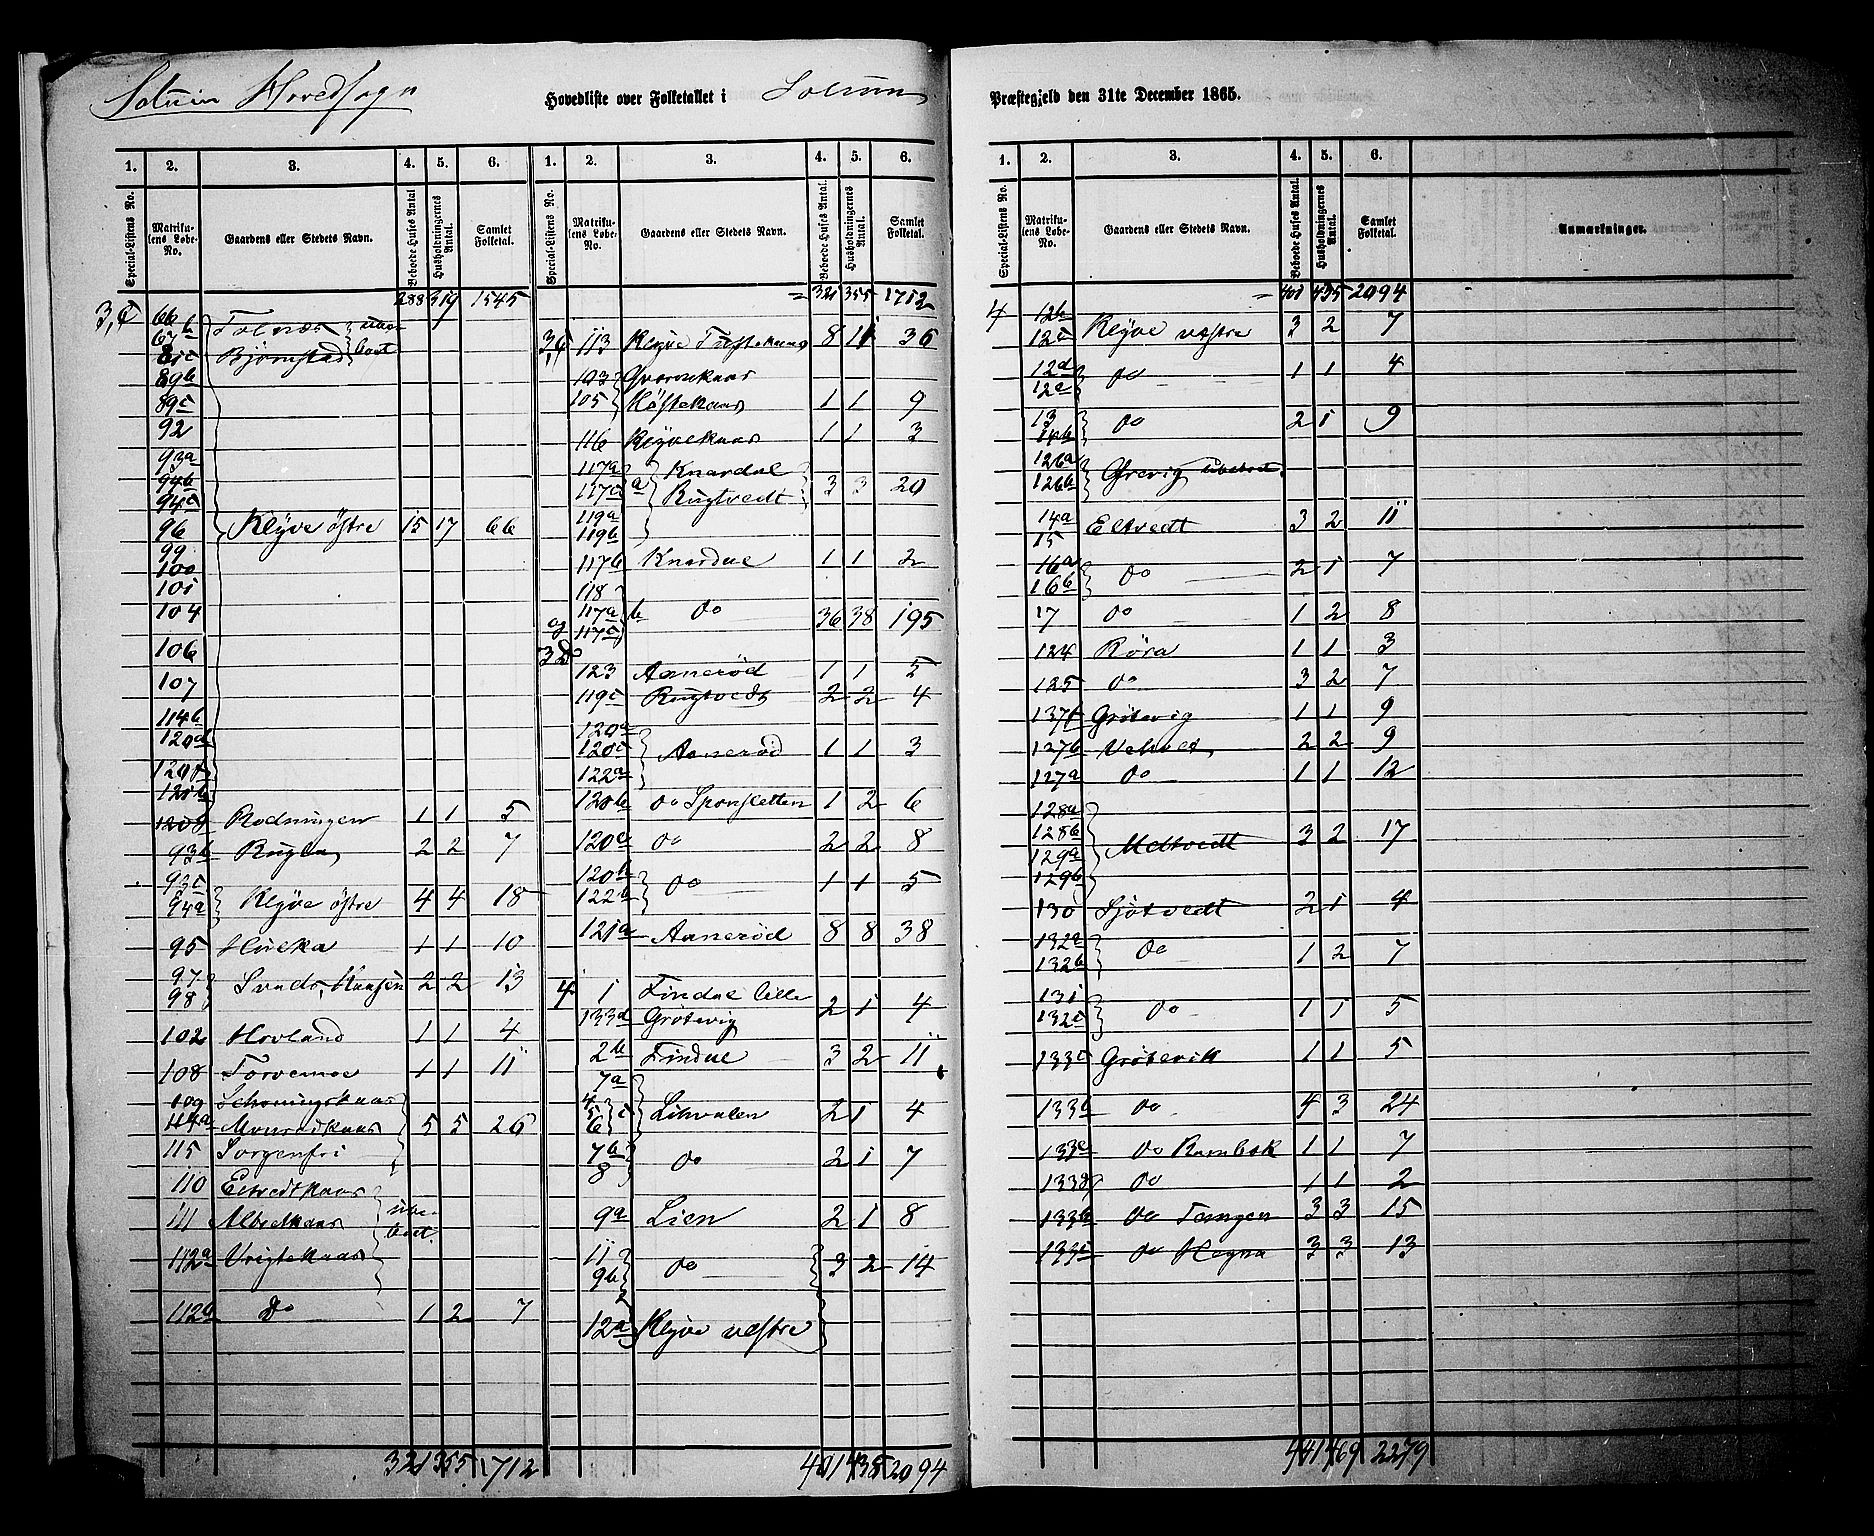 Solum Hovedsogn
Hovedliste over Folketallet i Solum Præstegjeld den 31te December 1865.
1. 2. 3. 4. 5. 6. 1. 2. 3. 4. 5. 6.
Special-Listens No. Matrikulens Løbe-No. Gaardens eller Stedets Navn. Beboede Huses Antal Husholdningernes Antal. Samlet Folketal. Special-Listens No. Matrikulens Løbe-No. Gaardens eller Stedets Navn. Beboede Huses Antal. Husholdningernes Antal. Samlet Folketal.
288 319 1545
66
67b Tolnæs ube-
81c Bjørnstad boet
89b
89c
92
93a
94b
94c
96 Klyve østre 15 17 66
99
100
101
104
106
107
114b
120d
120f
121b
120g Rodningen 1 1 5
93b Rugla 2 2 7
93c
94a Klyve østre 4 4 18
95 Hueka 1 1 10
97
98 2 2 13
102 Hovland 1 1 4
108 Torvemoe 1 1 11
109
114a 5 5 26
115 Sorgenfri
110 Eltvedtkaas
111 ube-
boet.
112a
112 Do 1 2 7
321 355 1712
= 321 355 1712
113 8 11 36
103 Qvernekaas
105 Køstekaas 1 1 9
116 Klyvekaas 1 1 3
117a Knardal
117c a Rugtvedt 3 3 20
119a
119b
117b Knardal 1 1 2
118
117a b Do 36 38 195
og 117c
3d
123 Aanerød 1 1 5
119c Rugtvedt 2 2 4
120a
120c Aanerød 1 1 3
122a
120b Do Sponsletten 1 2 6
120e Do 2 2 8
120h
122b Do 1 1 5
121a Aanerød 8 8 38
4 1 Findal lille
133d Grøtevig 2 1 4
2b Findal 3 2 11
7a
4
5 c
6 2 1 4
7b
8 Do 2 1 7
9a Lien 2 1 8
11
9b Do 3 2 14
12a Klyve vestre
401 435 2094
1. 2. 3. 4. 5. 6.
Special-Listens No. Matrikulens Løbe-No. Gaardens eller Stedets Navn. Beboede Huses Antal. Husholdningernes Antal. Samlet Folketal. Anmærkninger.
= 401 435 2094
4 12b
12c Klyve vestre 3 2 7
12d
12e Do 1 1 4
13
14b Do 2 1 9
126a
126b Grevig ubeboet
14a Eltvedt 3 2 11
15
16a
16b Do 2 1 7
17 Do 1 2 8
124 Røra 1 1 3
125 Do 3 2 7
137f Grøtevig 1 1 9
127b 2 2 9
127a Do 1 1 12
128a
128b Meltvedt 3 2 17
129a
129b
130 Sjøtvedt 2 1 4
132a
132b Do 1 2 7
131
132c Do 1 1 5
133c Grøtevik 1 1 5
133b Do 4 3 24
133e Do Rambæk 1 1 7
133g Do 1 1 2
133h Do Tangen 3 3 15
133i Do Hegna 3 3 13
441 469 2279